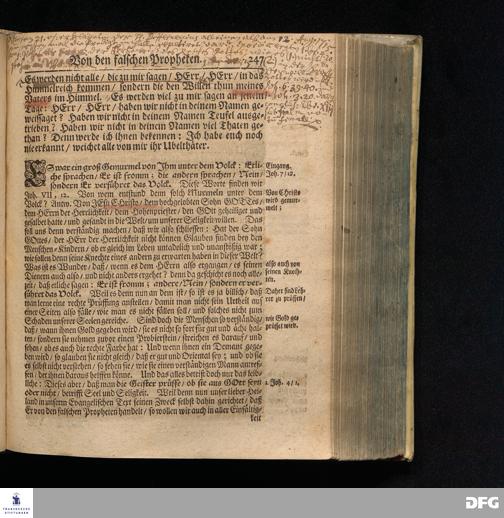 Von den falschen Propheten. 247
Es werden nicht alle / die zu mir sagen / HErr / HErr / in das
Himmelreich kommen / sondern die den Willen thun meines
Vaters im Himmel. Es werden viel zu mir sagen an jenem
Tage: HErr / HErr / haben wir nicht in deinem Namen ge-
weissaget? Haben wir nicht in deinem Namen Teufel ausge-
trieben? Haben wir nicht in deinem Namen viel Thaten ge-
than? Denn werde ich ihnen bekennen: Ich habe euch noch
nie erkannt / weichet alle von mir ihr Ubelthäter.
ES war ein groß Gemurmel von Ihm unter dem Volck: Etli-
che sprachen / Er ist fromm; die andern sprachen / Nein /
sondern Er verführet das Volck. Diese Worte finden wir
Joh. VII, 12. Von wem entstund denn solch Murmeln unter dem
Volck? Antw. Von JEsu Christo / dem hochgelobten Sohn GOTTes /
dem HErrn der Herrlichkeit / dem Hohenpriester / den GOtt geheiliget und
gesalbet hatte / und gesandt in die Welt / um unserer Seligkeit willen. Das
soll uns denn verständig machen / daß wir also schliessen: Hat der Sohn
GOttes / der HErr der Herrlichkeit nicht können Glauben finden bey den
Menschen-Kindern / ob er gleich im Leben untadelich und unanstößig war;
wie sollen denn seine Knechte eines andern zu erwarten haben in dieser Welt?
Was ist es Wunder / daß / wenn es dem HErrn also ergangen / es seinen
Dienern auch also / und nicht anders ergehet? denn da geschicht es noch alle-
zeit / daß etliche sagen: Er ist fromm; andere / Nein / sondern er ver-
führet das Volck. Weil es denn nun an dem ist / so ist es ja billich / daß
man lerne eine rechte Prüffung anstellen / damit man nicht sein Urtheil auf
einer Seiten also fälle / wie man es nicht fällen soll / und solches nicht zum
Schaden unserer Seelen gereiche. Sind doch die Menschen so verständig /
daß / wann ihnen Gold gegeben wird / sie es nicht so fort für gut und ächt hal-
ten / sondern sie nehmen zuvor einen Probierstein / streichen es darauf / und
sehen / ob es auch die rechte Farbe hat: Und wenn ihnen ein Demant gege-
ben wird / so glauben sie nicht gleich / daß er gut und Oriental sey; und ob sie
es selbst nicht verstehen / so sehen sie / wie sie einen verständigen Mann antref-
fen / der ihnen daraus helffen könne. Und das alles betrifft doch nur das leib-
liche: Dieses aber / daß man die Geister prüffe / ob sie aus GOtt seyn
oder nicht / betrifft Seel und Seligkeit. Weil denn nun unser lieber Hei-
land in unserm Evangelischen Text seinen Zweck selbst dahin gerichtet / daß
Er von den falschen Propheten handelt / so wollen wir auch in aller Einfältig-
keit
Eingang.
Joh. 7/12.
Von Christo
wird gemur-
melt;
also auch von
seinen Knech-
ten.
Daher sind sel-
ve zu prüffen /
wie Gold ge-
prüfet wird.
1 Joh. 4/1.
FRANCKESCHE
STIFTUNGEN
DFG